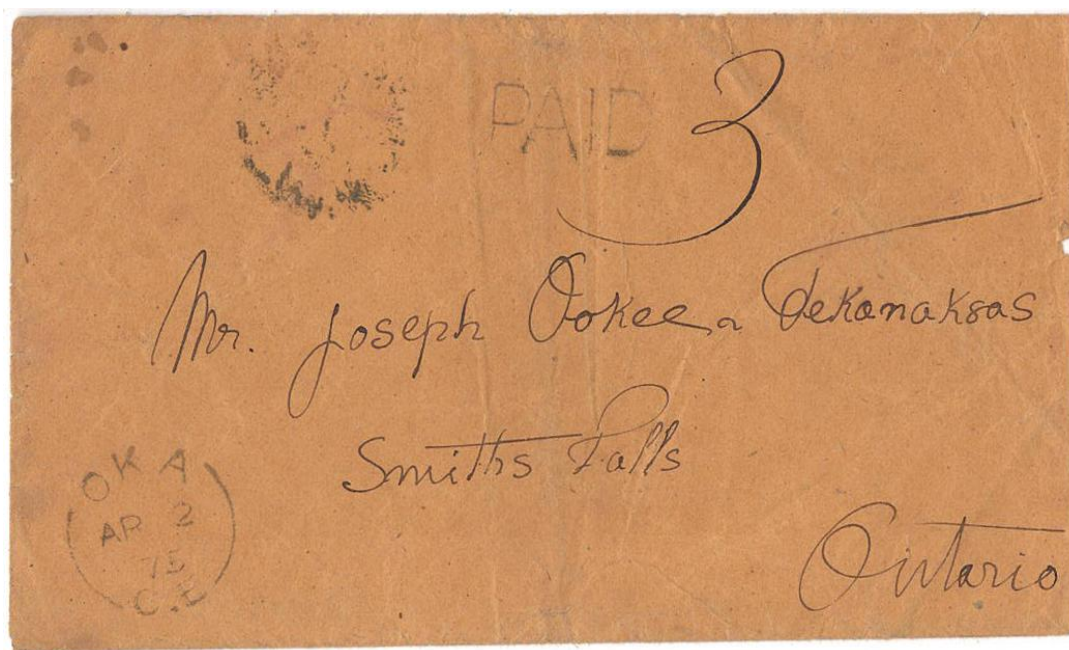 PAID 3
Mr. Joseph Ookee a Tekanaksas
Smiths Falls
Ontario
OKA
AP 2
75
C.E